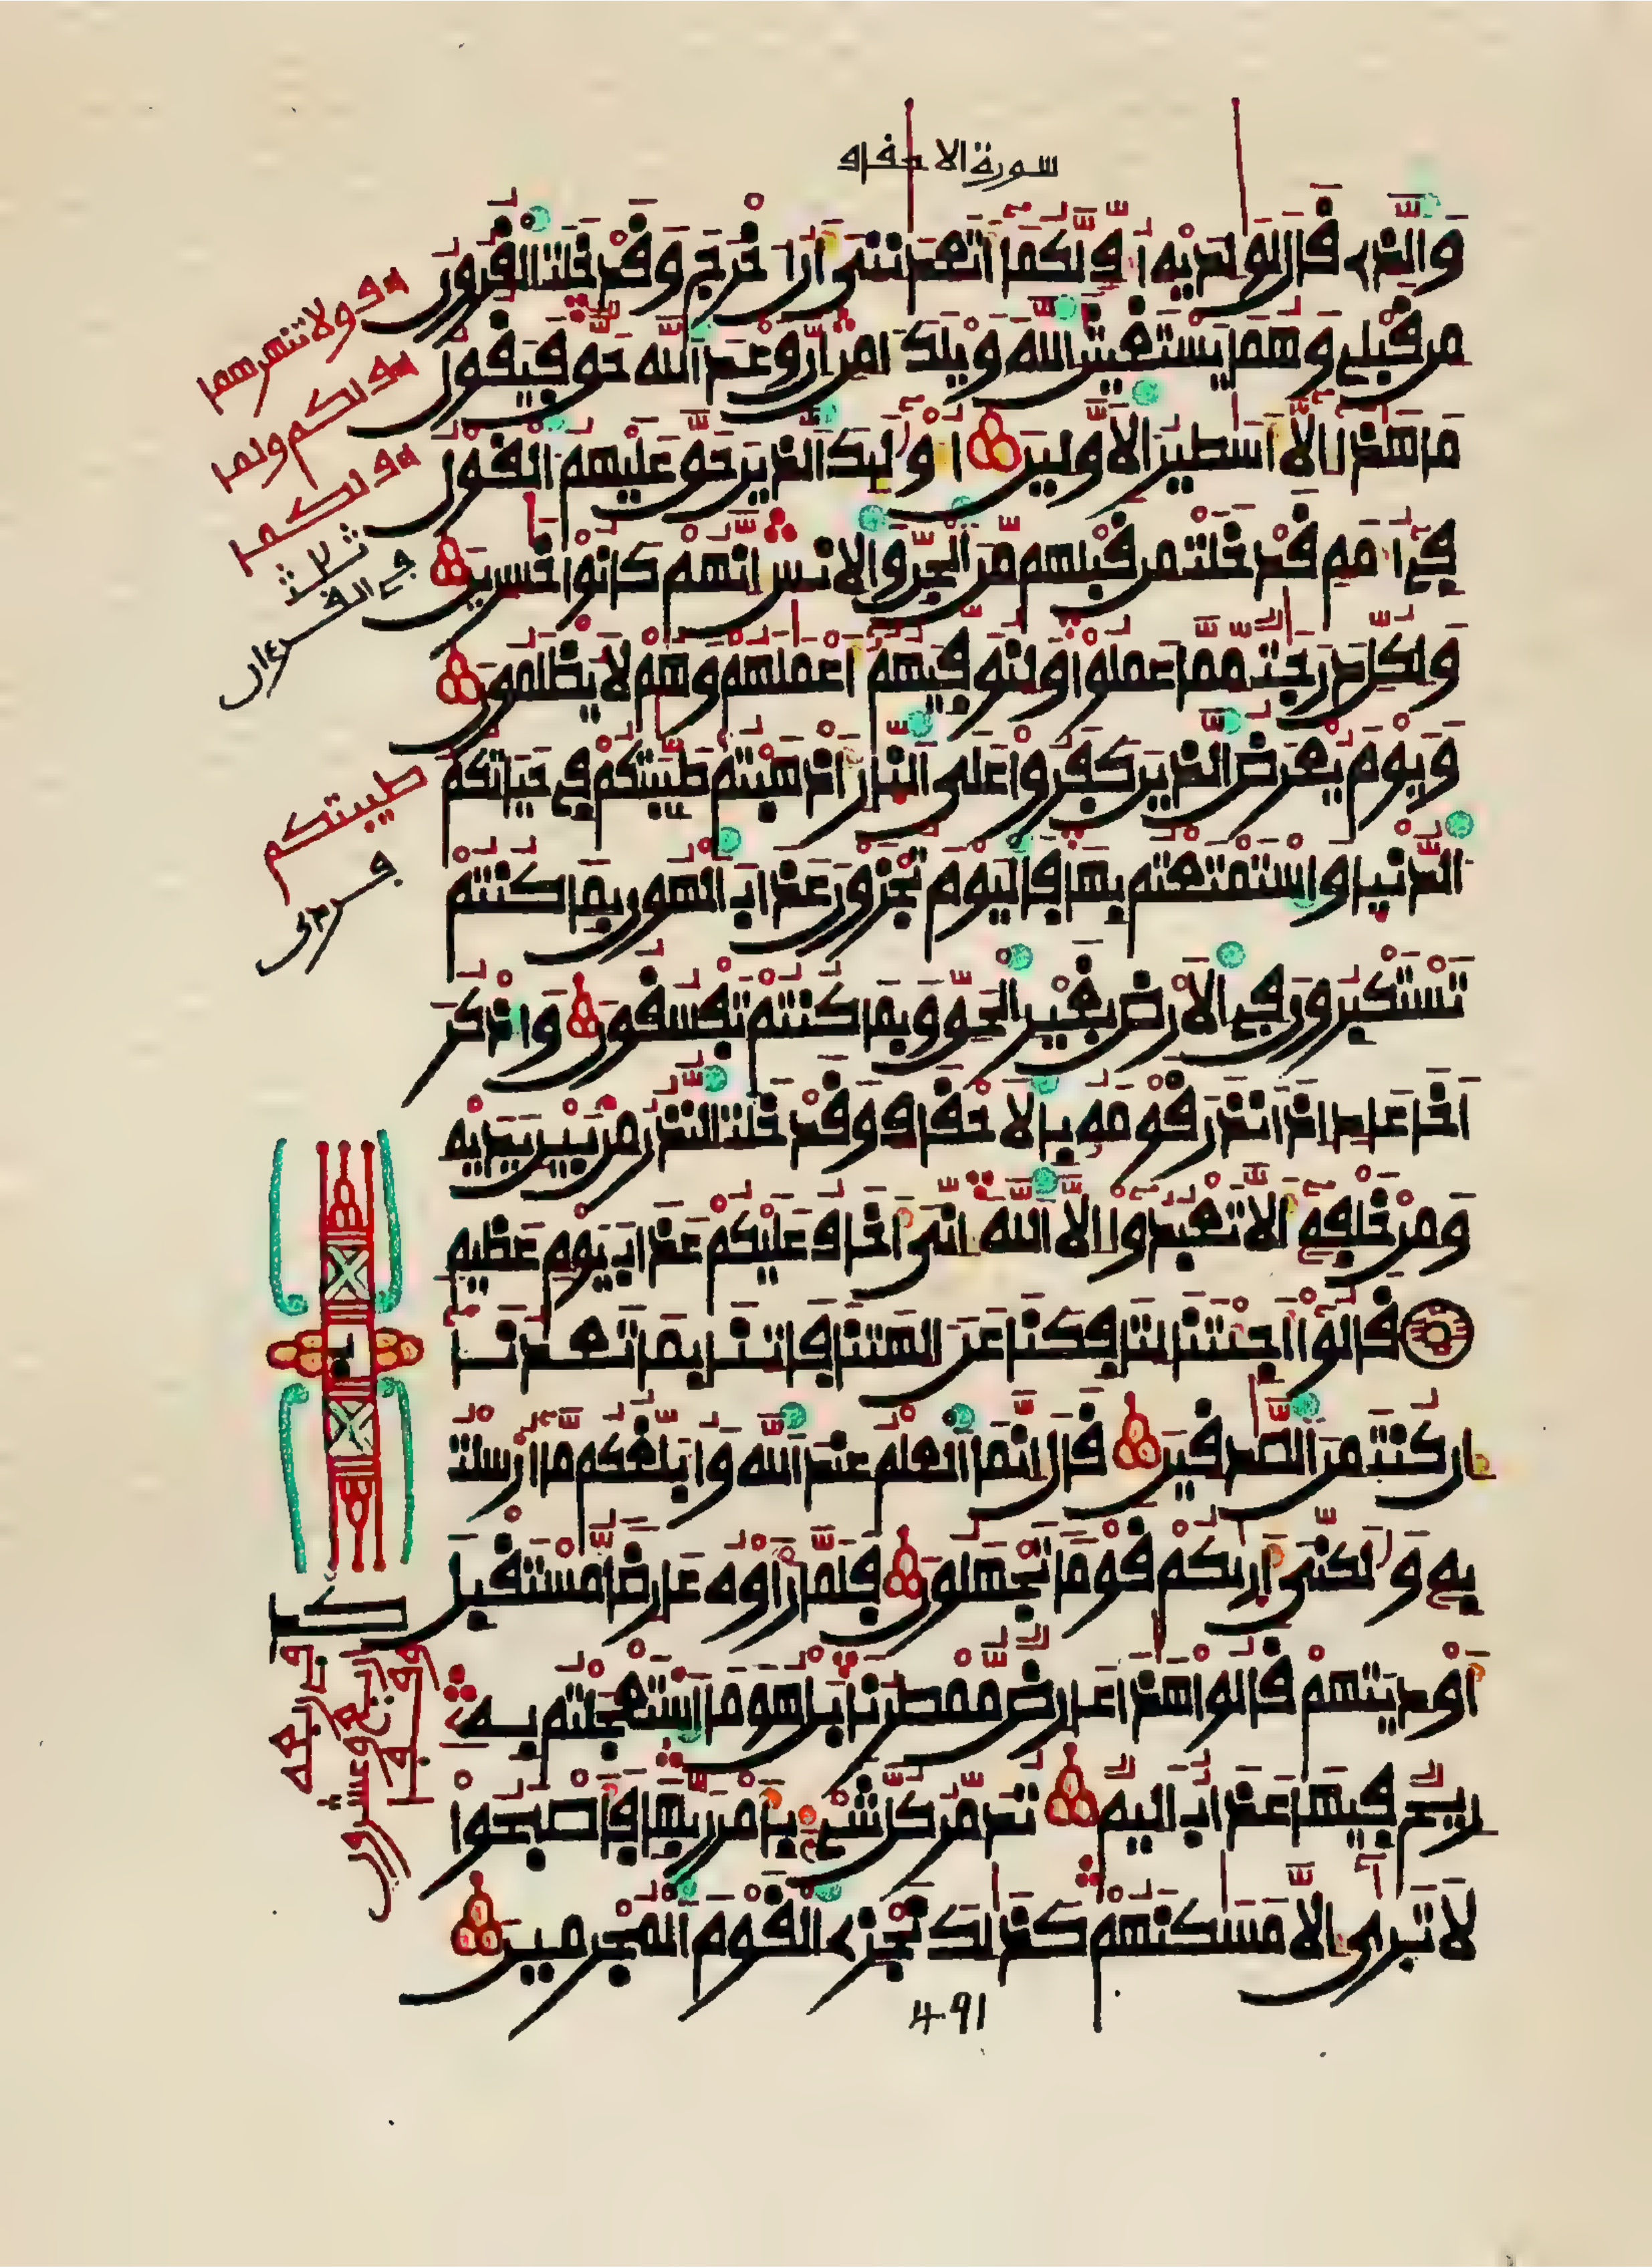 سورة الاحقاف
وَالذِے قَالَ لِوَٰلِدَيْهِ أُفٍّ لَّكُمَا أَتَعِدَٰنِنِي أَنْ أُخْرَجَ وَقَدْ خَلَتِ الْقُرُونُ
مِن قَبْلِي وَهُمَا يَسْتَغِيثَٰنِ اللَّهَ وَيْلَكَ ءَامِنْ إِنَّ وَعْدَ اللَّهِ حَقٌّ فَيَقُولُ
مَا هَٰذَا إِلَّا أَسَٰطِيرُ الْأَوَّلِينَ أُوْلَٰئِكَ الذِينَ حَقَّ عَلَيْهِمُ الْقَوْلُ
فِي أُمَمٍ قَدْ خَلَتْ مِن قَبْلِهِم مِّنَ الْجِنِّ وَالْإِنسِ إِنَّهُمْ كَانُوا خَٰسِرِينَ
وَلِكُلٍّ دَرَجَٰتٌ مِّمَّا عَمِلُوا وَلِنُوَفِّيَهُمْ أَعْمَٰلَهُمْ وَهُمْ لَا يُظْلَمُونَ
وَيَوْمَ يُعْرَضُ الذِينَ كَفَرُوا عَلَى النَّارِ أَذْهَبْتُمْ طَيِّبَٰتِكُمْ فِي حَيَاتِكُمُ
الدُّنْيَا وَاسْتَمْتَعْتُم بِهَا فَالْيَوْمَ تُجْزَوْنَ عَذَابَ الْهُونِ بِمَا كُنتُمْ
تَسْتَكْبِرُونَ فِي الْأَرْضِ بِغَيْرِ الْحَقِّ وَبِمَا كُنتُمْ تَفْسُقُونَ وَاذْكُرَ
اَخَا عَادٍ إِذْ أَنذَرَ قَوْمَهُ بِالْأَحْقَافِ وَقَدْ خَلَتِ النُّذُرُ مِن بَيْنِ يَدَيْهِ
وَمِنْ خَلْفِهِ أَلَّا تَعْبُدُوا إِلَّا اللَّهَ إِنِّيَ أَخَافُ عَلَيْكُمْ عَذَابَ يَوْمٍ عَظِيمٍ
قَالُوا أَجِئْتَنَا لِتَأْفِكَنَا عَنْ ءَالِهَتِنَا فَأْتِنَا بِمَا تَعِدُنَا
إِن كُنتَ مِنَ الصَّٰدِقِينَ قَالَ إِنَّمَا الْعِلْمُ عِندَ اللَّهِ وَأُبَلِّغُكُم مَّا أُرْسِلْتُ
بِهِ وَلَٰكِنِّيَ أَرَىٰكُمْ قَوْمًا تَجْهَلُونَ فَلَمَّا رَأَوْهُ عَارِضًا مُّسْتَقْبِلَ
أَوْدِيَتِهِمْ قَالُوا هَٰذَا عَارِضٌ مُّمْطِرُنَا بَلْ هُوَ مَا اسْتَعْجَلْتُم بِهِ
رِيحٌ فِيهَا عَذَابٌ أَلِيمٌ تُدَمِّرُ كُلَّ شَيْءٍ بِأَمْرِ رَبِّهَا فَأَصْبَحُوا
لَا تَرَىٰ إِلَّا مَسَٰكِنَهُمْ كَذَٰلِكَ نَجْزِے الْقَوْمَ الْمُجْرِمِينَ
491
اف ولا تنهرهما
اف لكم ولما
اف لكما
ثلاث
في القرءان
طيبتكم
فرد